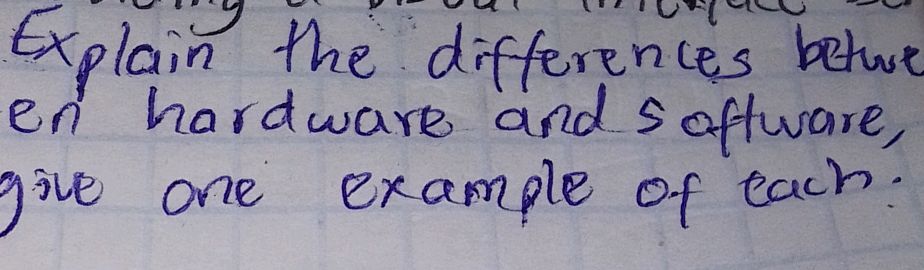 Explain the differences betwe
en hardware and software,
give one example of each.